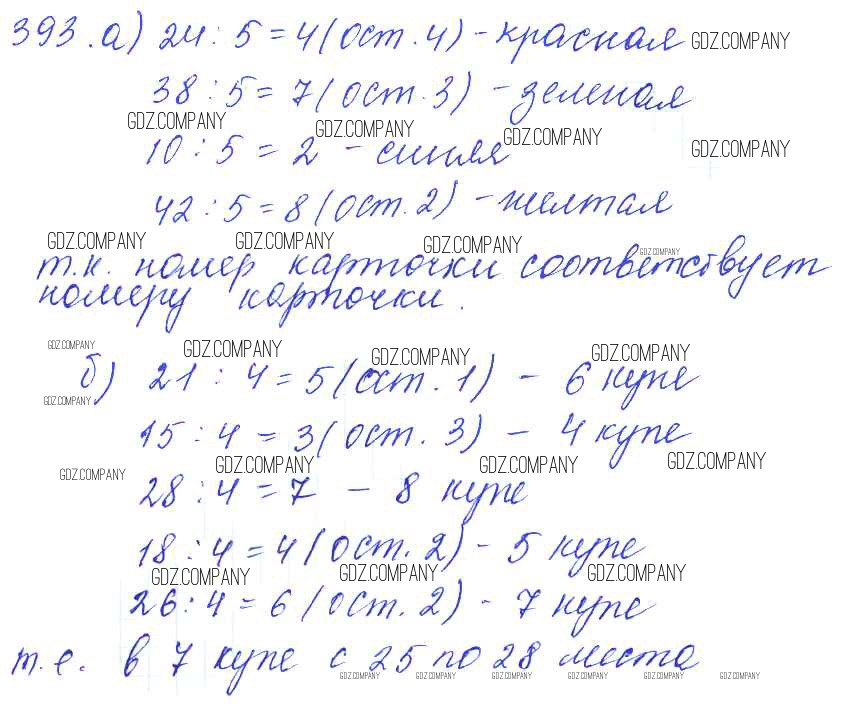 393.а) 24 : 5 = 4 (ост. 4) - красная GDZ.COMPANY
38 : 5 = 7 (ост. 3) - зеленая
GDZ.COMPANY GDZ.COMPANY GDZ.COMPANY GDZ.COMPANY
10 : 5 = 2 - синяя
42 : 5 = 8 (ост. 2) - желтая
GDZ.COMPANY GDZ.COMPANY GDZ.COMPANY GDZ.COMPANY
т.к. номер карточки соответствует
номеру карточки.
GDZ.COMPANY GDZ.COMPANY GDZ.COMPANY GDZ.COMPANY
б) 21 : 4 = 5 (ост. 1) - 6 купе
GDZ.COMPANY
15 : 4 = 3 (ост. 3) - 4 купе
GDZ.COMPANY GDZ.COMPANY GDZ.COMPANY GDZ.COMPANY
28 : 4 = 7 - 8 купе
18 : 4 = 4 (ост. 2) - 5 купе
GDZ.COMPANY GDZ.COMPANY GDZ.COMPANY
26 : 4 = 6 (ост. 2) - 7 купе
т.е. в 7 купе с 25 по 28 места
GDZ.COMPANY GDZ.COMPANY GDZ.COMPANY GDZ.COMPANY GDZ.COMPANY GDZ.COMPANY